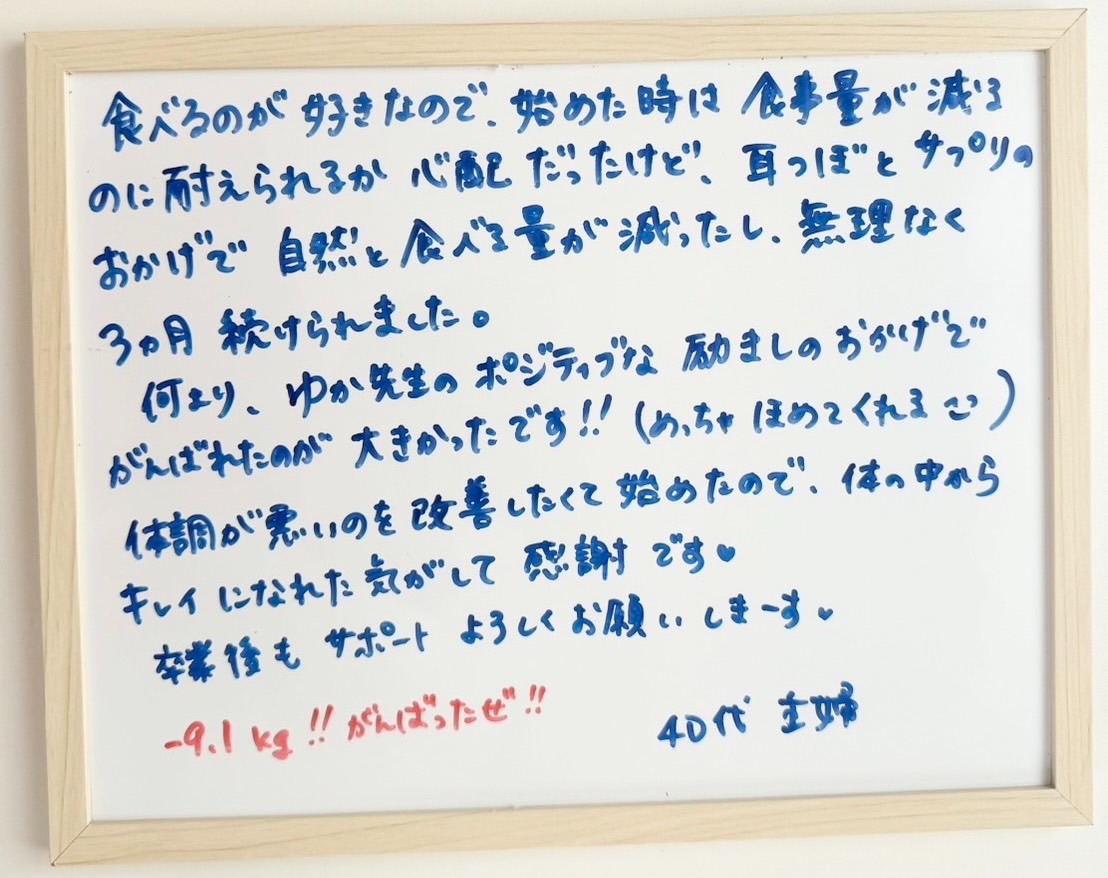 食べるのが好きなので、始めた時は食事量が減る
のに耐えられるか心配だったけど、耳つぼとサプリの
おかげで自然と食べる量が減ったし、無理なく
3ヵ月続けられました。
何より、ゆか先生のポジティブな励ましのおかげで
がんばれたのが大きかったです!!(めっちゃほめてくれる)
体調が悪いのを改善したくて始めたので、体の中から
キレイになれた気がして感謝です♥
卒業後もサポートよろしくお願いしまーす♥
-9.1kg!!がんばったぜ!!
40代 主婦